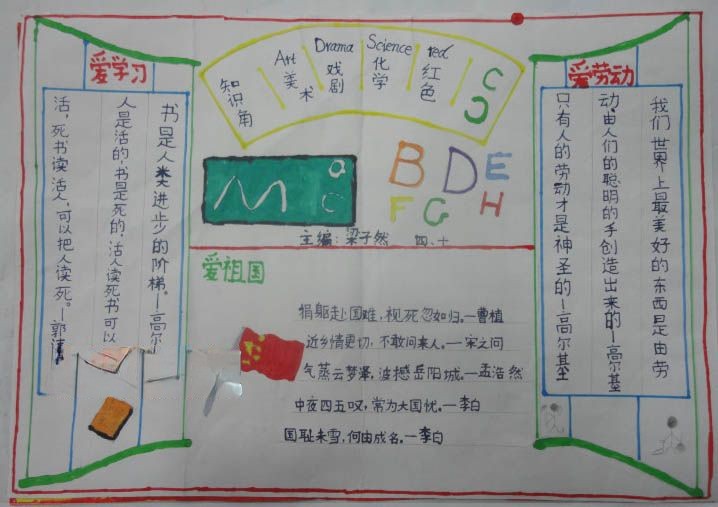 爱学习
书是人类进步的阶梯。—高尔
人是活的，书是死的。活人读死书可以
活，死书读活人，可以把人读死。—郭
知识角
Art
美术
Drama
戏剧
Science
化学
red
红色
C
C
M
a
C
B D E
F G H
主编：梁子然 四、十
爱祖国
捐躯赴国难，视死忽如归。—曹植
近乡情更切，不敢问来人。—宋之问
气蒸云梦泽，波撼岳阳城。—孟浩然
中夜四五叹，常为大国忧。—李白
国耻未雪，何由成名。—李白
爱劳动
我们世界上最美好的东西是由劳
动、由人们的聪明的手创造出来的—高尔基
只有人的劳动才是神圣的—高尔基